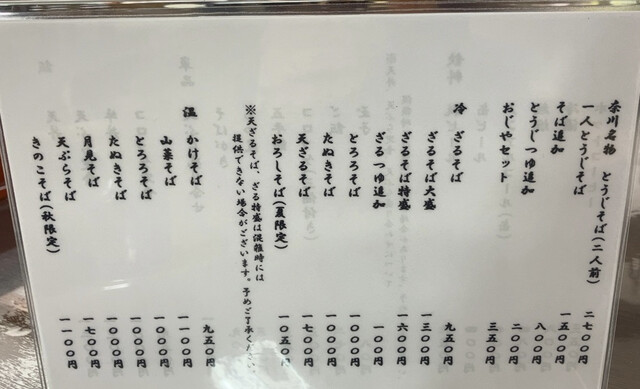 奈川名物 とうじそば(二人前) 二七〇〇円
一人とうじそば 一五〇〇円
そば追加 八〇〇円
とうじつゆ追加 二〇〇円
おじやセット 三五〇円
冷 ざるそば 九五〇円
ざるそば大盛 一三〇〇円
ざるそば特盛 一六〇〇円
ざるつゆ追加 一〇〇円
とろろそば 一〇〇〇円
たぬきそば 一〇〇〇円
天ざるそば 一七〇〇円
おろしそば(夏限定) 一〇五〇円
※天ざるそば、ざる特盛は混雑時には
提供できない場合がございます。予めご了承ください
温 かけそば 九五〇円
山菜そば 一一〇〇円
とろろそば 一〇〇〇円
たぬきそば 一〇〇〇円
月見そば 一〇〇〇円
天ぷらそば 一七〇〇円
きのこそば(秋限定) 一一〇〇円